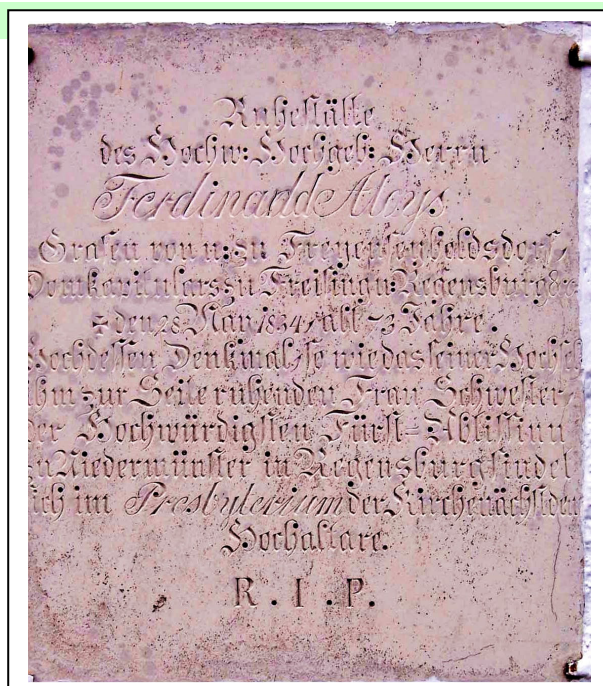 Ruhestätte
des Hochw: Hochgeb: Herrn
Ferdinand Aloys
Grafen von u: zu Freyen
Domkapitulars zu Freising u: Regensburg
den 28 May 1834, alt 73 Jahre.
Hochdessen Denkmal, so wie das seiner
ihm zur Seite ruhenden Frau Schwester,
der Hochwürdigsten Fürst=Äbtissinn
zu Niedermünster in Regensburg findet
sich im Presbyterium der Kirche nächst dem
Hochaltare.
R. I. P.